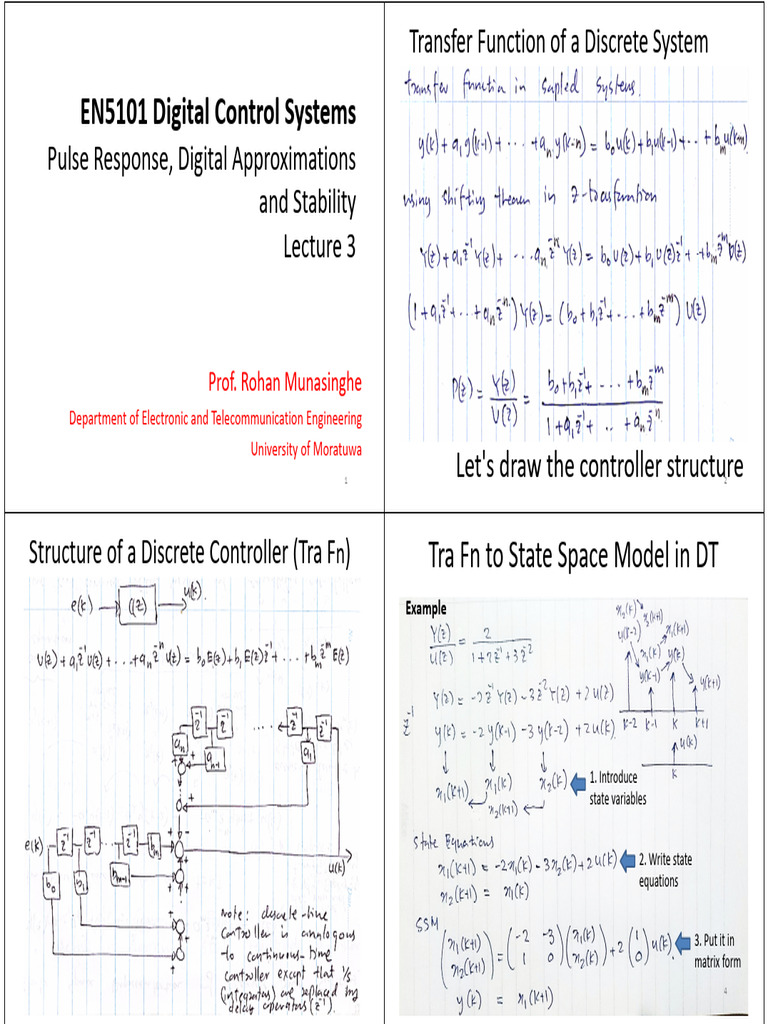 EN5101 Digital Control Systems
Pulse Response, Digital Approximations
and Stability
Lecture 3
Prof. Rohan Munasinghe
Department of Electronic and Telecommunication Engineering
University of Moratuwa
1
Transfer Function of a Discrete System
transfer function in sapled systems.
y(k)+a₁y(k-1)+···+aₙy(k-n) = b₀u(k)+b₁u(k-1)+··+bₘu(k-m)
using shifting theorem in z-transformation
Y(z)+a₁z⁻¹Y(z)+···aₙz⁻ⁿY(z) = b₀U(z)+b₁U(z)z⁻¹+··+bₘz⁻ᵐU(z)
(1+a₁z⁻¹+···+aₙz⁻ⁿ)Y(z) = (b₀+b₁z⁻¹+···+bₘz⁻ᵐ)U(z)
D(z) = Y(z)/U(z) = b₀+b₁z⁻¹+···+bₘz⁻ᵐ / 1+a₁z⁻¹+··+aₙz⁻ⁿ
Let's draw the controller structure
2
Structure of a Discrete Controller (Tra Fn)
e(k) u(k)
U(z)+a₁z⁻¹U(z)+···+aₙz⁻ⁿU(z) = b₀E(z)+b₁E(z)z⁻¹+···+bₘz⁻ᵐE(z)
z⁻¹ z⁻¹ ··· z⁻¹ z⁻¹
aₙ aₙ₋₁ a₁
e(k) z⁻¹ z⁻¹ ··· z⁻¹ bₘ
u(k)
b₀ b₁ bₘ₋₁
note: discrete-time
controller is analogous
to continuous-time
controller except that 1/s
(integrators) are replaced by
delay operators (z⁻¹).
Tra Fn to State Space Model in DT
Example
Y(z)/U(z) = 2/1+2z⁻¹+3z⁻²
x₂(k) x₂(k+1)
y(k-2) x₁(k) x₁(k+1)
y(k-1) y(k) y(k+1)
Y(z) = -2z⁻¹Y(z)-3z⁻²Y(z)+2U(z)
z⁻¹
k-2 k-1 k k+1
y(k) = -2y(k-1)-3y(k-2)+2u(k).
u(k)
k
x₁(k+1) x₁(k) x₂(k)
x₂(k+1)
1. Introduce
state variables
State Equations
x₁(k+1) = -2x₁(k)-3x₂(k)+2u(k)
x₂(k+1) = x₁(k)
2. Write state
equations
SSM
(x₁(k+1) x₂(k+1)) = (-2 -3 1 0)(x₁(k) x₂(k))+2(1 0)u(k).
y(k) = x₁(k+1)
3. Put it in
matrix form
4